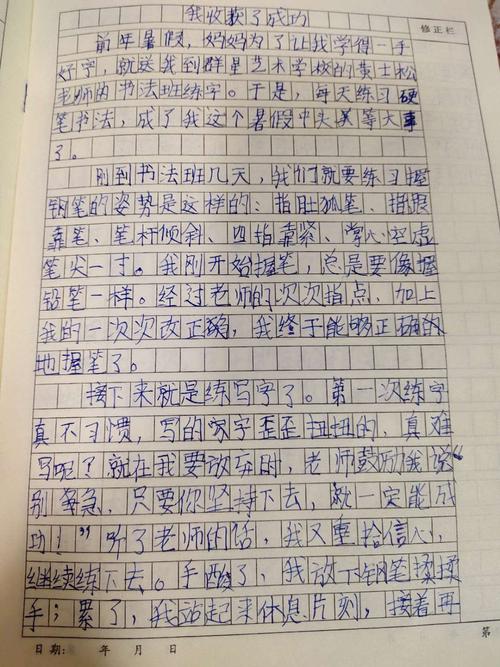 我收获了成功
修正栏
前年暑假，妈妈为了让我学得一手
好字，就送我到群星艺术学校的黄士松
老师的书法班练字。于是，每天练习硬
笔书法，成了我这个暑假中头莫等大事
了。
刚到书法班几天，我们就要练习握
钢笔的姿势是这样的：指肚抓笔、指跟
靠笔、笔杆倾斜、四指靠紧、掌心空虚
笔尖一寸。我刚开始握笔，总是要像握
铅笔一样。经过老师的次次指点，加上
我的一次次改正确，我终于能够正确的
地握笔了。
接下来就是练写字了。第一次练字
真不习惯，写的字歪歪扭扭的，真难
写呢？就在我要放弃时，老师鼓励我说“
别着急，只要你坚持下去，就一定能成
功！”听了老师的话，我又重拾信心，
继续练下去。手酸了，我放下钢笔揉揉
手；累了，我站起来休息片刻，接着再
日期： 年 月 日
第